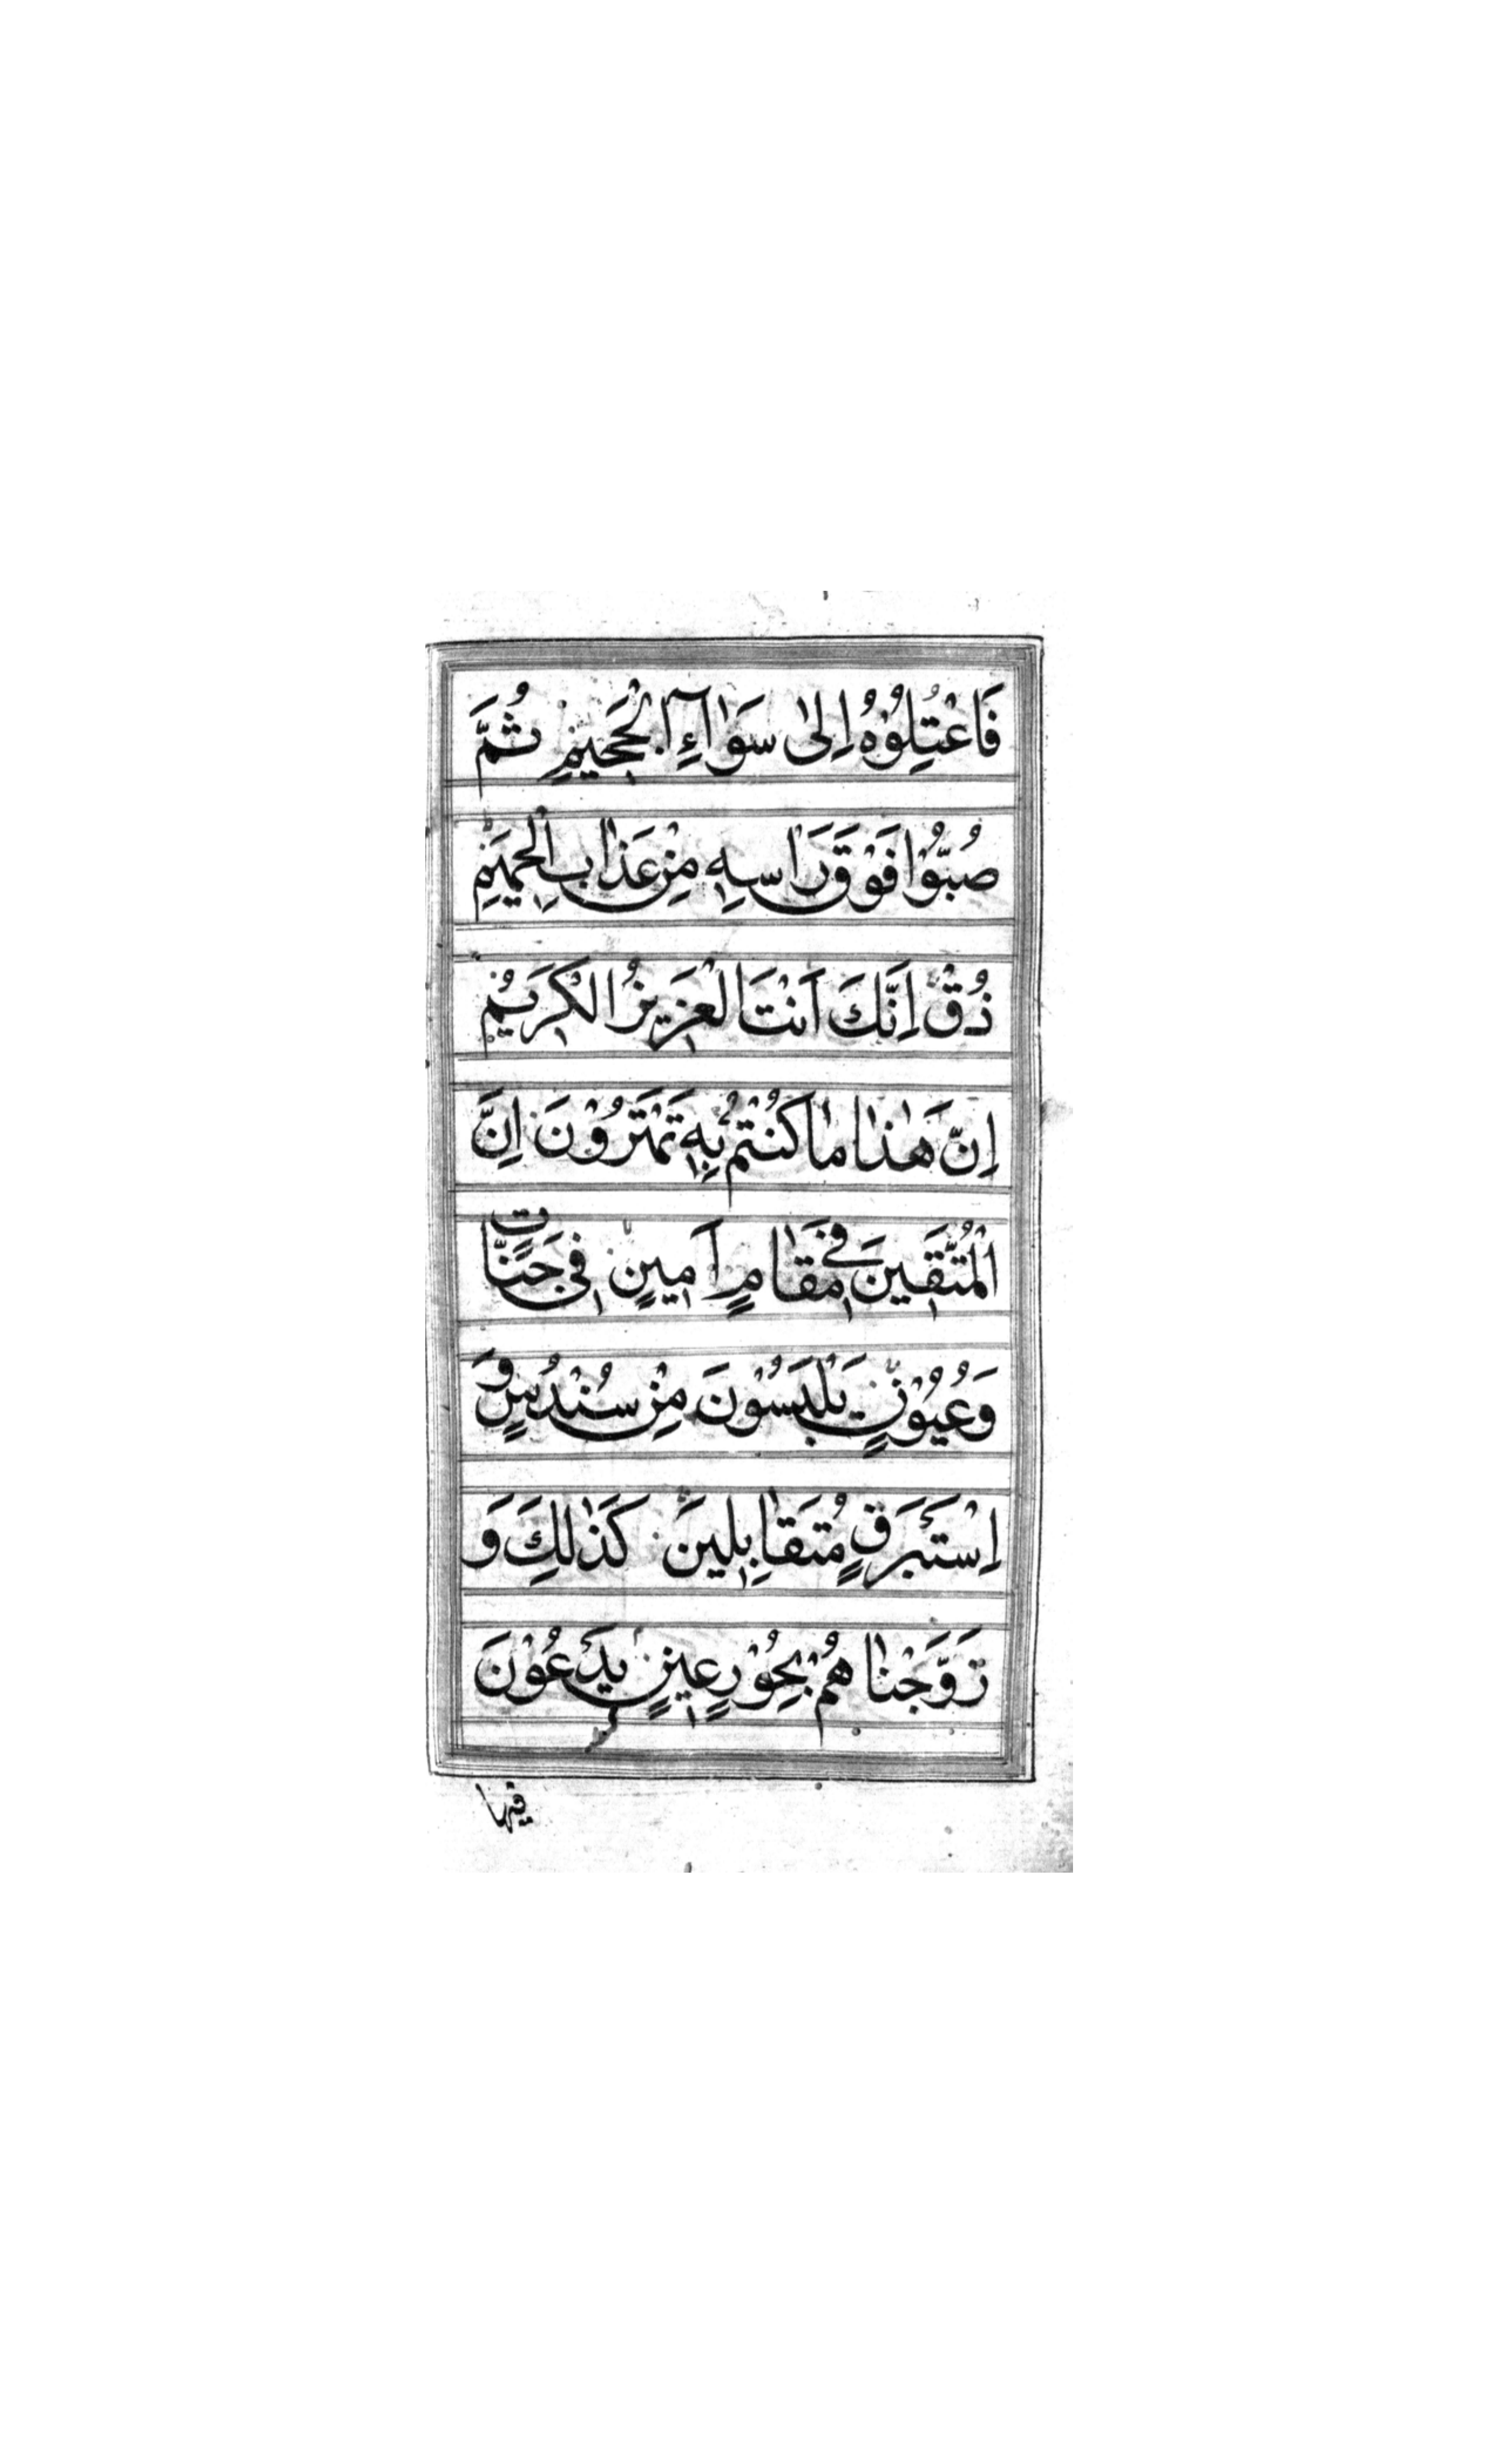 فَاعْتِلُوْهُ اِلىٰ سَوَٓاءِ الْجَحِيمِ ثُمَّ
صُبُّوْا فَوْقَ رَاْسِهٖ مِنْ عَذَابِ الْحَمِيْمِ
ذُقْ اِنَّكَ اَنْتَ الْعَزِيزُ الْكَرِيْمُ
اِنَّ هٰذَا مَا كُنْتُمْ بِهٖ تَمْتَرُوْنَ اِنَّ
الْمُتَّقٖينَ فٖي مَقَامٍ اَمٖينٍ فٖي جَنَّاتٍ
وَعُيُوْنٍ يَلْبَسُوْنَ مِنْ سُنْدُسٍ وَ
اِسْتَبْرَقٍ مُتَقَابِلٖينَ كَذٰلِكَ وَ
زَوَّجْنَاهُمْ بِحُوْرٍ عٖينٍ يَدْعُوْنَ
فيها